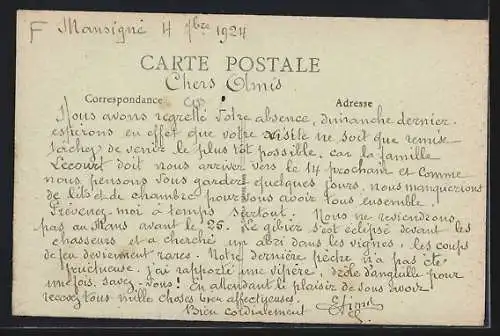 F Mansigné 4 7bre 1924
CARTE POSTALE
Chers Amis
Correspondance Adresse
Nous avons regretté votre absence, dimanche dernier.
espérons en effet que votre visite ne soit que remise
tâchez de venir le plus tôt possible, car la famille
Lecourt doit nous arriver vers le 14 prochain et comme
nous pensons vous garder quelques jours, nous manquerions
de lits et de chambre pour vous avoir tous ensemble.
Prévenez-moi à temps surtout. Nous ne reviendrons
pas au Mans avant le 25. Le gibier s'est éclipsé devant les
chasseurs et a cherché un abri dans les vignes, les coups
de feu deviennent rares. Notre dernière pêche n'a pas été
fructueuse. j'ai rapporté une vipère, drôle d'anguille pour
une fois, savez-vous! En attendant le plaisir de vous avoir
recevez tous mille choses bien affectueuses.
Bien cordialement